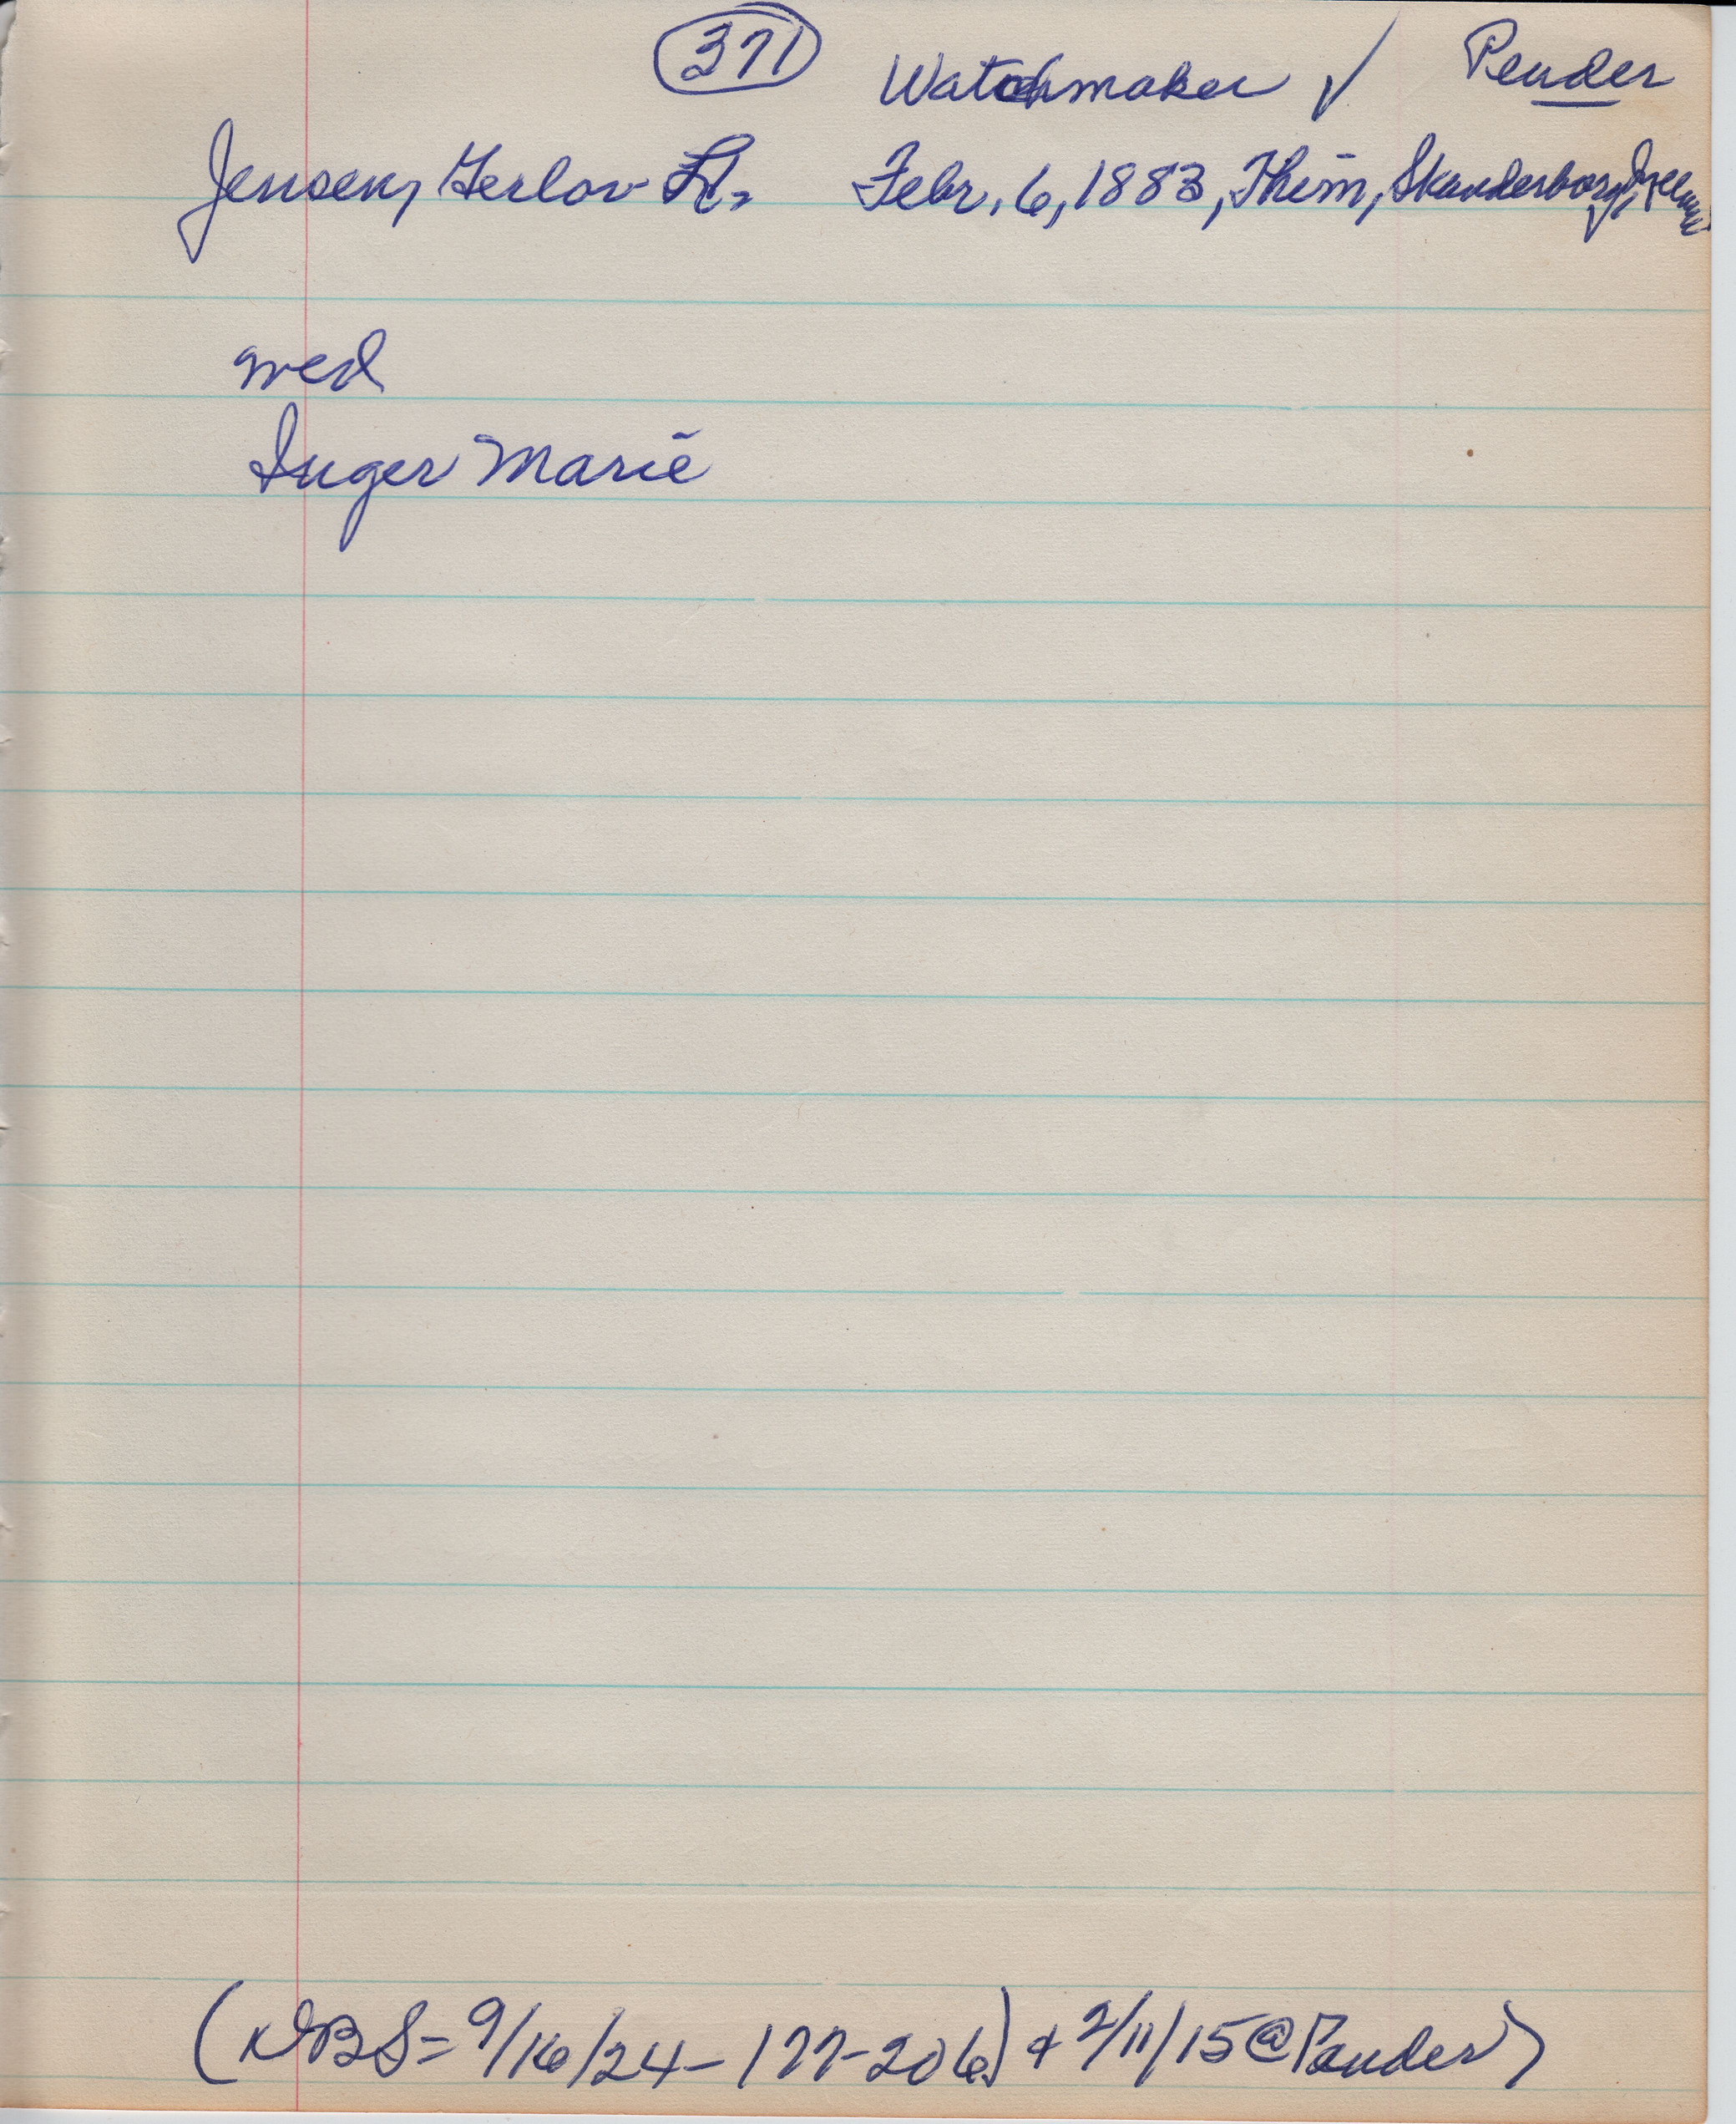 371
Watchmaker ✓ Pender
Jensen, Gerlov A. Febr. 6, 1883, Them, Skanderborg,
wed
Inger Marie
(DBS = 9/16/24 - 177-206) + 2/11/15 @ Pender)